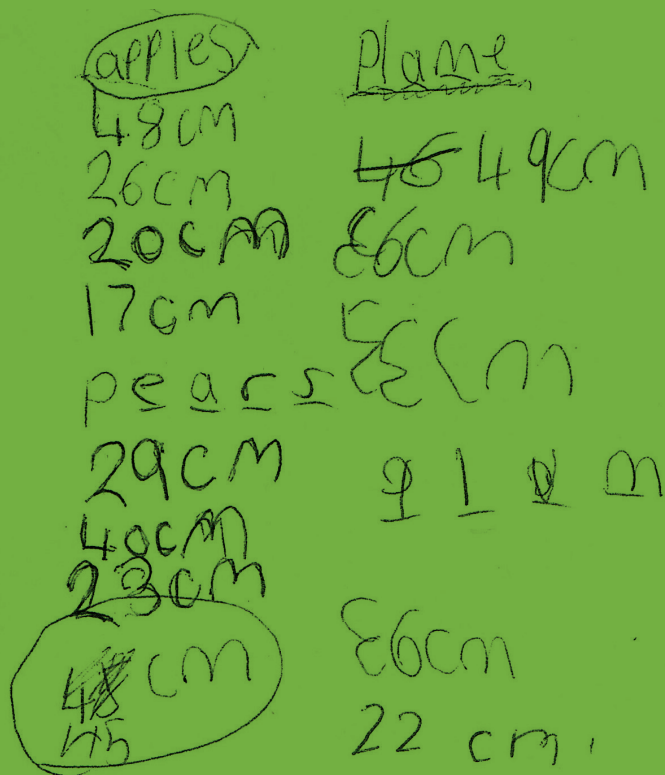 apples
48cm
26cm
20cm
17cm
pears
29cm
40cm
23cm
cm
45
Plame
49cm
36cm
cm
plum
36cm
22 cm.